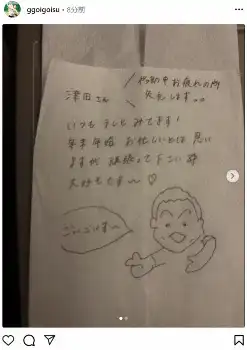 ggoigoisu・8分前
移動中お疲れの所
失礼します。。
津田さん
いつもテレビみてます!
年末年始 お忙しいとは思い
ますが 頑張って下さい
大好きです〜♡
ごいごいすー